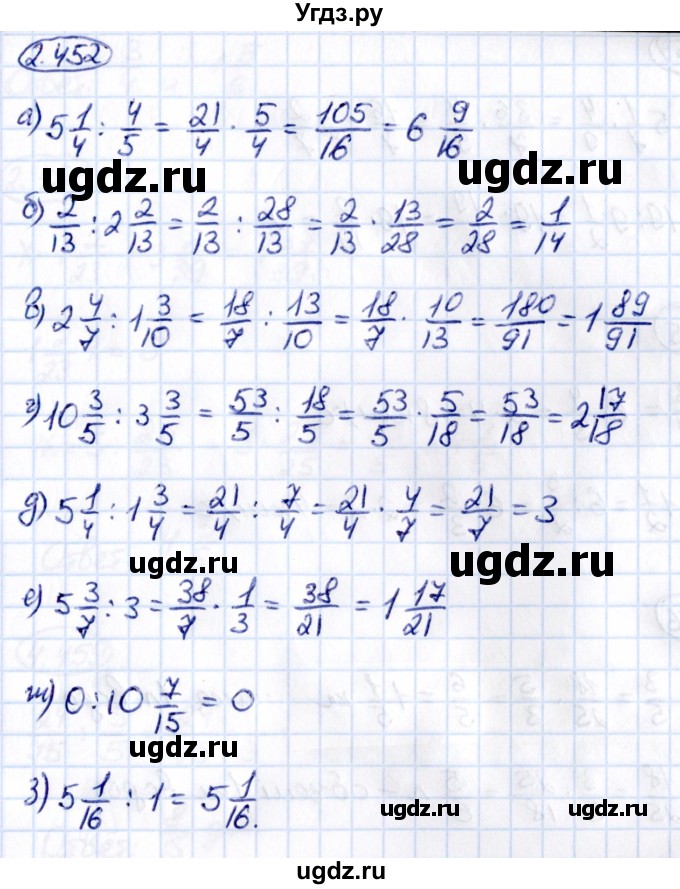 Угдз.ру
2.452
а) 5 1/4 : 4/5 = 21/4 · 5/4 = 105/16 = 6 9/16
ugdz.ru ugdz.ru
б) 2/13 : 2 2/13 = 2/13 : 28/13 = 2/13 · 13/28 = 2/28 = 1/14
в) 2 4/7 : 1 3/10 = 18/7 : 13/10 = 18/7 · 10/13 = 180/91 = 1 89/91
ugdz.ru
г) 10 3/5 : 3 3/5 = 53/5 : 18/5 = 53/5 · 5/18 = 53/18 = 2 17/18
д) 5 1/4 : 1 3/4 = 21/4 : 7/4 = 21/4 · 4/7 = 21/7 = 3
ugdz.ru ugdz.ru
е) 5 3/7 : 3 = 38/7 · 1/3 = 38/21 = 1 17/21
ж) 0 : 10 7/15 = 0
ugdz.ru
з) 5 1/16 : 1 = 5 1/16.
ugdz.ru ugdz.ru
ugdz.ru